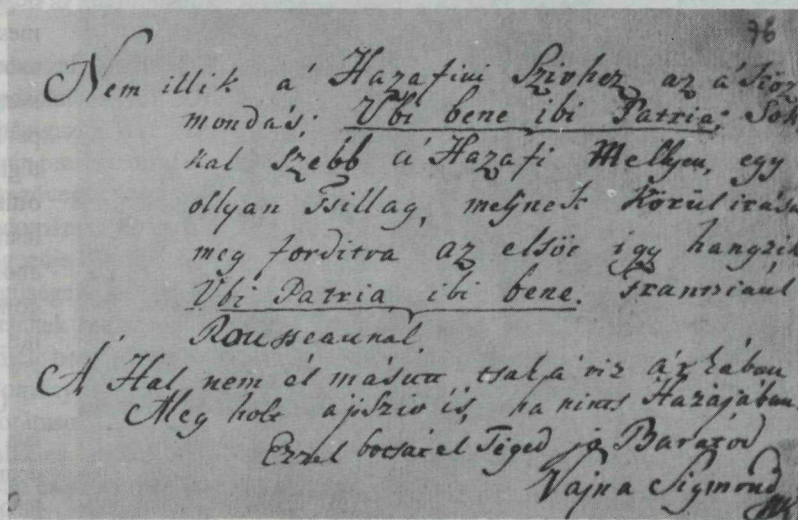 76
Nem illik a' Hazafiui Szivhez az a' Köz
mondás; Ubi bene ibi Patria; Sok
kal szebb a' Hazafi Mellyen, egy
ollyan Tsillag, meljnek Körülirása
meg forditva az elsöt igy hangzik
Ubi Patria ibi bene. Frantziául
Rousseaunál.
A' Hal nem él másutt, tsak a' viz árkában
Meg holt a jó Sziv is, ha nints Hazájában.
Ezzel botsát el Téged jó Barátod
Vajna Sigmond